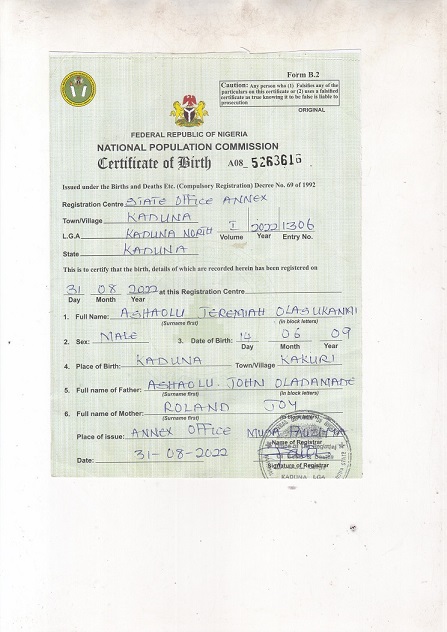 Form B.2
Caution: Any person who (1) Falsifies any of the
particulars on this certificate or (2) uses a falsified
certificate as true knowing it to be false is liable to
prosecution
ORIGINAL
FEDERAL REPUBLIC OF NIGERIA
NATIONAL POPULATION COMMISSION
Certificate of Birth A08_ 5263616
Issued under the Births and Deaths Etc. (Compulsory Registration) Decree No. 69 of 1992
Registration Centre STATE OFFICE ANNEX
Town/Village KADUNA
L.G.A KADUNA NORTH I 2022 1306
Volume Year Entry No.
State KADUNA
This is to certify that the birth, details of which are recorded herein has been registered on
31 08 2022 at this Registration Centre
Day Month Year
1. Full Name: ASHAOLU JEREMIAH OLASUKANMI
(Surname first) (in block letters)
2. Sex: MALE 3. Date of Birth: 14 06 09
Day Month Year
4. Place of Birth: KADUNA Town/Village KAKURI
5. Full name of Father: ASHAOLU JOHN OLADAMADE
(Surname first) (in block letters)
6. Full name of Mother: ROLAND JOY
(Surname first) (in block letters)
Place of Issue: ANNEX OFFICE MUSA FAUZIYA
Name of Registrar
Date: 31-08-2022
Signature of Registrar
KADUNA LGA